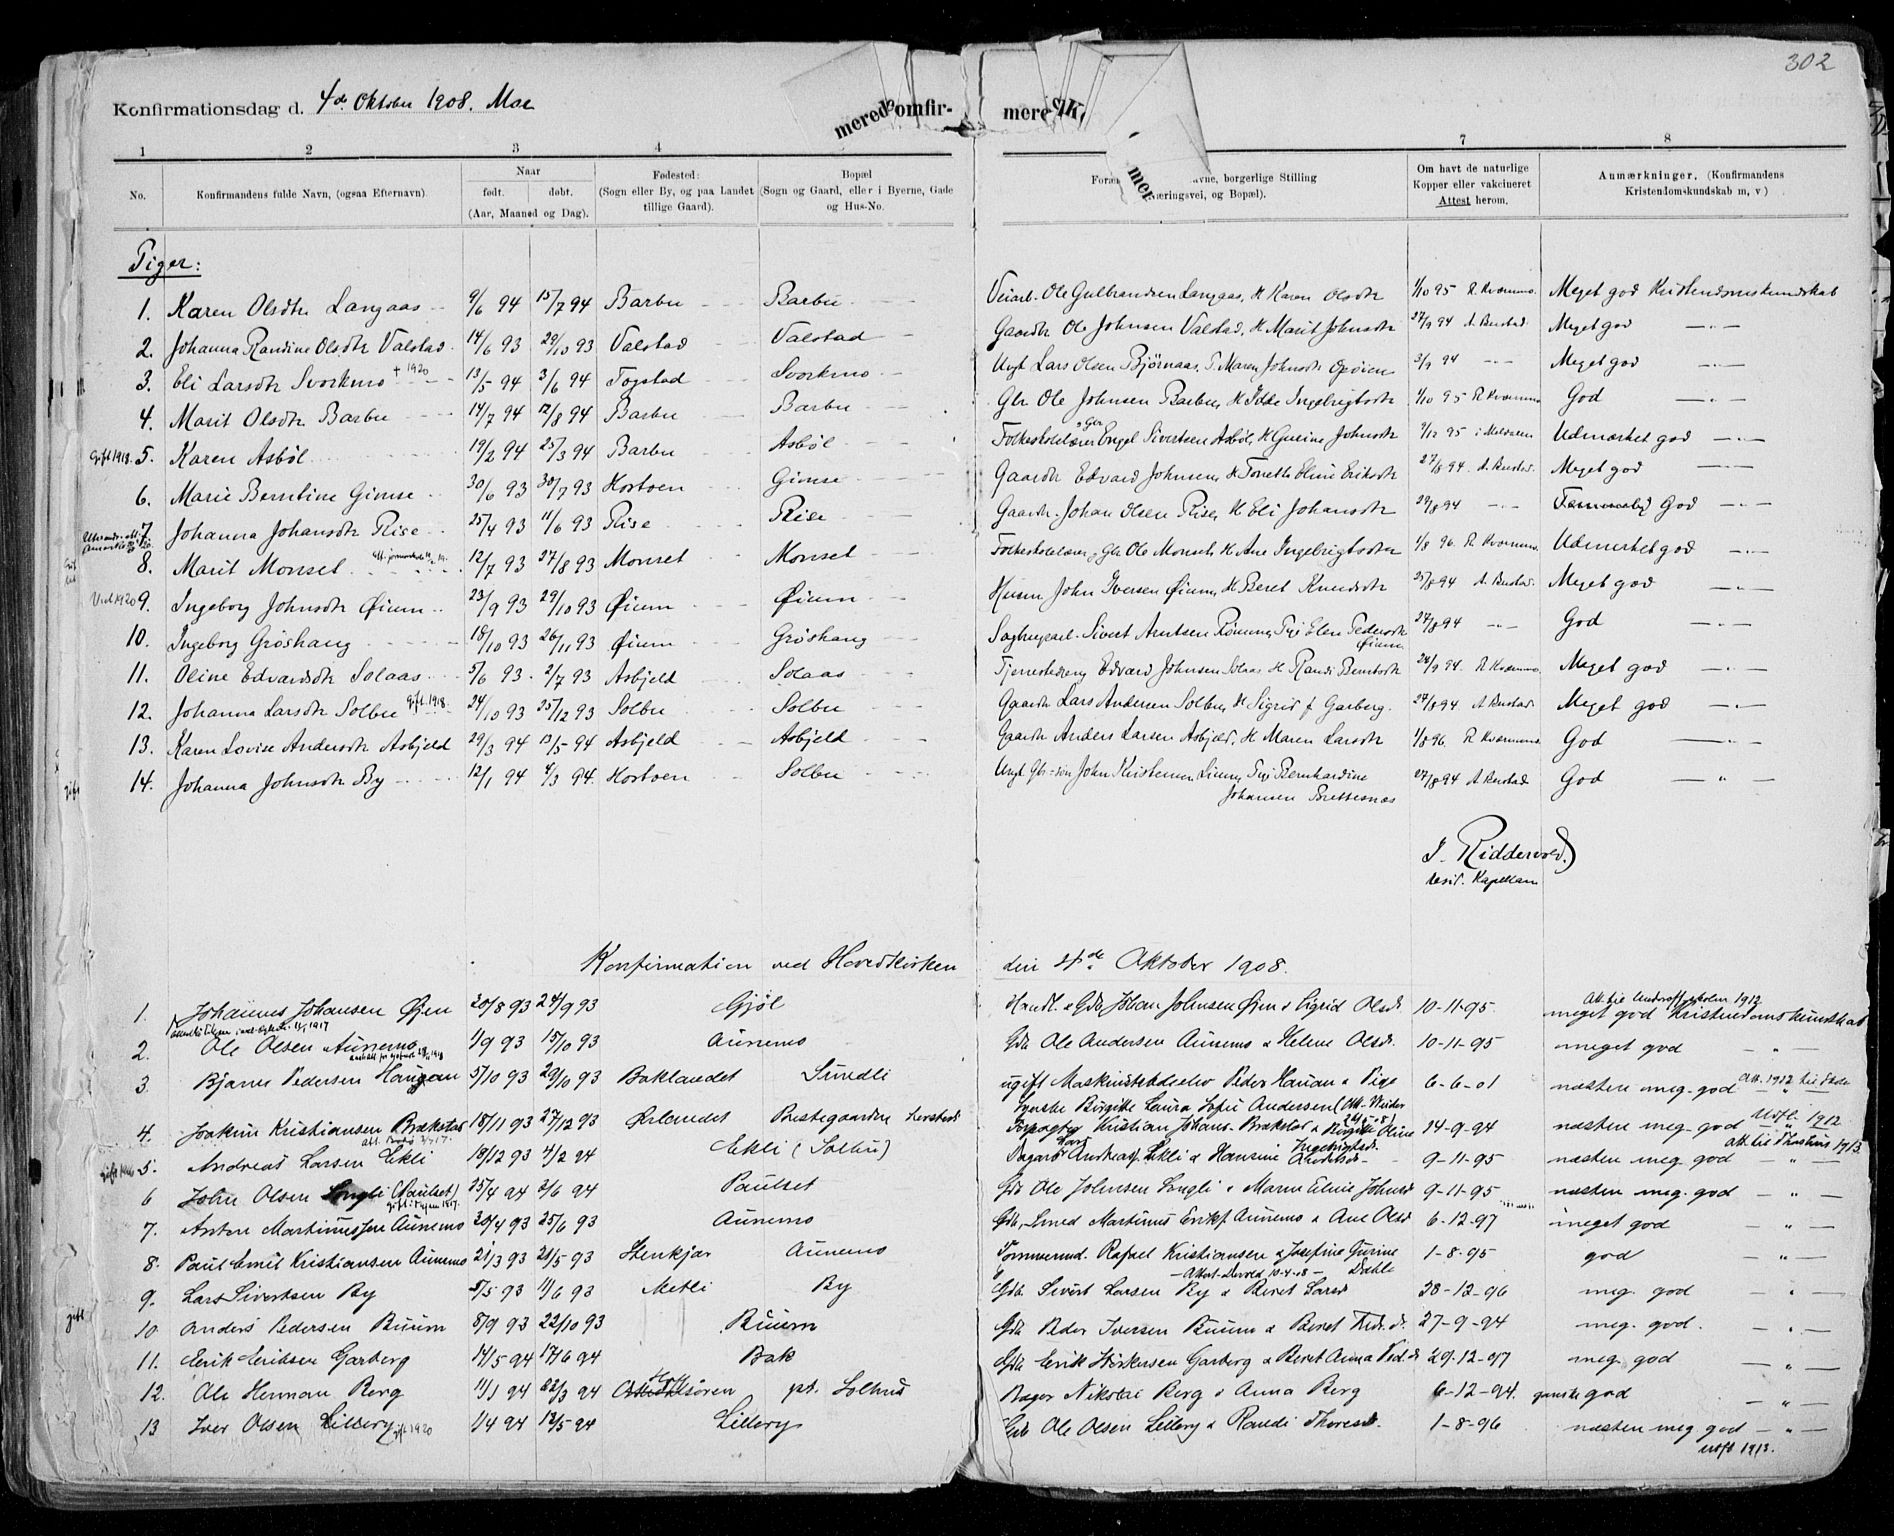 302
Konfirmationsdag d. 4de Oktober 1908. Moe
meredeomfir- mere K.
mer
1 2 3 4 7 8
No. Konfirmandens fulde Navn, (ogsaa Efternavn). Naar født. døbt. (Aar, Maaned og Dag). Fødested: (Sogn eller By, og paa Landet tillige Gaard). Bopæl (Sogn og Gaard, eller i Byerne, Gade og Hus-No. Foræ vne, borgerlige Stilling væringsvei, og Bopæl). Om havt de naturlige Kopper eller vakcineret Attest herom. Anmærkninger. (Konfirmandens Kristendomskundskab m, v)
Piger:
1. Karen Olsdtr Langaas 9/6 94 15/7 94 Barbu Barbu Veiarb. Ole Gulbrandsen Langaas, H Karen Olsdtr 1/10 95 R. Kvammo. Meget god Kristendomskundskab
2. Johanna Randine Olsdtr Valstad 14/6 93 29/10 93 Valstad Valstad Gaardbr Ole Johnsen Valstad, H Marit Johnsdtr 27/9 94 A. Berstad. Meget god —„—
3. Eli Larsdtr Svorkmo † 1920 13/5 94 3/6 94 Fogstad Svorkmo Ungk Lars Olsen Bjørnaas, P. Maren Johnsdtr 3/9 94 —„— Meget god —„—
4. Marit Olsdtr Barbu 14/7 94 12/8 94 Barbu Barbu Gbr Ole Johnsen Barbu, H Ingebrigtsdtr 1/10 95 R. Kvammo God —„—
Gift 1918. 5. Karen Asbøl 19/2 94 25/3 94 Barbu Asbøl Folkeskolelærer & Gbr Engel Sivertsen Asbøl, H Gurine Johnsdtr 9/12 95 i Meldalen Udmerket god —„—
6. Marie Berntine Gimse 30/6 93 30/7 93 Hostoen Gimse Gaardbr Edvard Johnsen, H Eline Eriksdtr 27/8 94 A. Berstad. Meget god —„—
7. Johanna Johansdtr Rise 25/4 93 11/6 93 Rise Rise Gaardbr. Johan Olsen Rise, H Eli Johansdtr 29/8 94 —„— God —„—
8. Marit Monset 12/7 93 27/8 93 Monset Monset Folkeskolelærer, Gbr Ole Monset, H Ane Ingebrigtsdtr 1/8 96. R. Kvammo. Udmerket god —„—
1920 9. Ingeborg Johnsdtr Øium 23/9 93 29/10 93 Øium Øium Husm John Iversen Øium, H Beret Knudsdtr 25/8 94 A. Berstad. Meget god —„—
10. Ingeborg Grøshaug 18/10 93 26/11 93 Øium Grøshaug Sivert Arntsen Rømme, Pige Elen Pedersdtr Øium 27/8 94 —„— God —„—
11. Oline Edvardsdtr Solaas 5/6 93 2/7 93 Asbjeld Solaas Edvard Johnsen Solaas H Randi Berntsdtr 24/9 94. R. Kvammo. Meget god —„—
12. Johanna Larsdtr Solbu Gift. 1918. 24/10 93 25/12 93 Solbu Solbu Gaardbr Lars Andersen Solbu, H Sigrid f Garberg. 27/8 94 A. Berstad. Meget god —„—
13. Karen Lovise Andersdtr Asbjeld 29/3 94 13/5 94 Asbjeld Asbjeld Gaardbr Anders Larsen Asbjeld, H Maren Larsdtr 1/8 96. R. Kvammo. God —„—
gift 14. Johanna Johnsdtr By 12/1 94 4/3 94. Hostoen Solbu Ungk Gbr-søn John Kristensen, Pige Bernhardine Johansen Brettesnæs 27/8 94 A. Berstad. God —„—
J. Riddervold.
resid. Kapellan
Konfirmation ved Hovedkirken den 4de Oktober 1908.
1. Johannes Johansen Øyen 20/8 93 24/9 93 Gjøl Handl. & Gbr Johan Johnsen Øyen & Sigrid Olsdr. 10-11-95. meget god Kristendomskundskab
2. Ole Olsen Aunemo 1/9 93 15/10 93 Aunemo Gbr Ole Andersen Aunemo & Helene Olsdr. 10-11-95 meget god —„—
3. Bjarne Pedersen Haugan 5/10 93 29/10 93 Baklandet Sundli ugift Peder Haugan & Pige Birgitte Laura Sofie Andersen 6-6-01 næsten meg. god Att. 1912
4. Joakim Kristiansen Brækstad 18/11 93 27/12 93 Ørlandet Prestegaarden Kristian Johans. Brækstad & Birgitte Oline Ingebrigtsdr. 14-9-94 næsten meg. god —„— Utfl. 1912
5. Andreas Larsen Ekli 18/12 93 4/2 94 Ekli (Solbu) Dagarb Lars Andreas. Ekli & Hansine Andersdr. 9-11-95 næsten meg. god —„—
6 John Olsen Songli (Paulset) 25/4 94 2/6 94 Paulset Gbr Ole Johnsen Songli & Maren Eline Johnsdr 9-11-95 næsten meg. god —„—
7. Anton Martinussen Aunemo 20/4 93 25/6 93 Aunemo Gbr, Smed Martinus Eriks. Aunemo & Ane Olsdr 6-12-97 meget god —„—
8. Paul Emil Kristiansen Aunemo 21/3 93 21/5 93 Stenkjær Aunemo Tømmermd. Rafael Kristiansen & Josefine Gurine Dahle 1-8-95 god —„—
9. Lars Sivertsen By 5/5 93 11/6 93 Metli By Gbr Sivert Larsen By & Beret Larsdr 28-12-96 meg. god —„—
gift 10. Anders Pedersen Buum 8/9 93 22/10 93 Buum Gbr Peder Iversen Buum & Beret dr. 27-9-94 meg. god. —„—
11. Erik Eriksen Garberg 14/5 94 17/6 94 Bak Gbr Erik Garberg & Beret Anna Ped.dr 29-12-97 meg. god —„—
12. Ole Herman Berg 11/1 94 22/3 94 pt. Solhus Bager Nikolai Berg & Anna Berg 6-12-94. ganske god —„—
13 Iver Olsen Lillery gift 1920 1/4 94 12/5 94 Lillery Gbr Ole Olsen Lillery & Randi Thoresdr. 1-8-96 næsten meg. god —„—
utfl 1913.